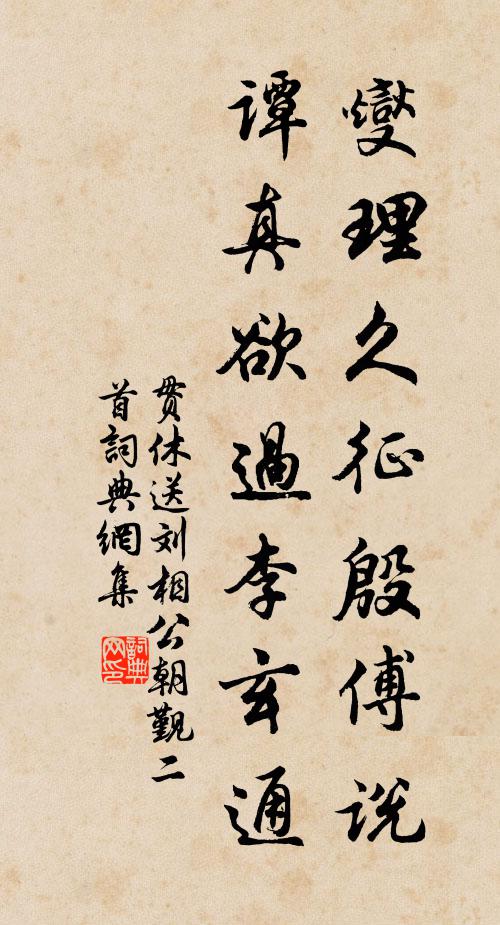 燮理久征殷傅说
谭真欲過李玄通
贯休送刘相公朝觐二
首詞典網集
詞典网印